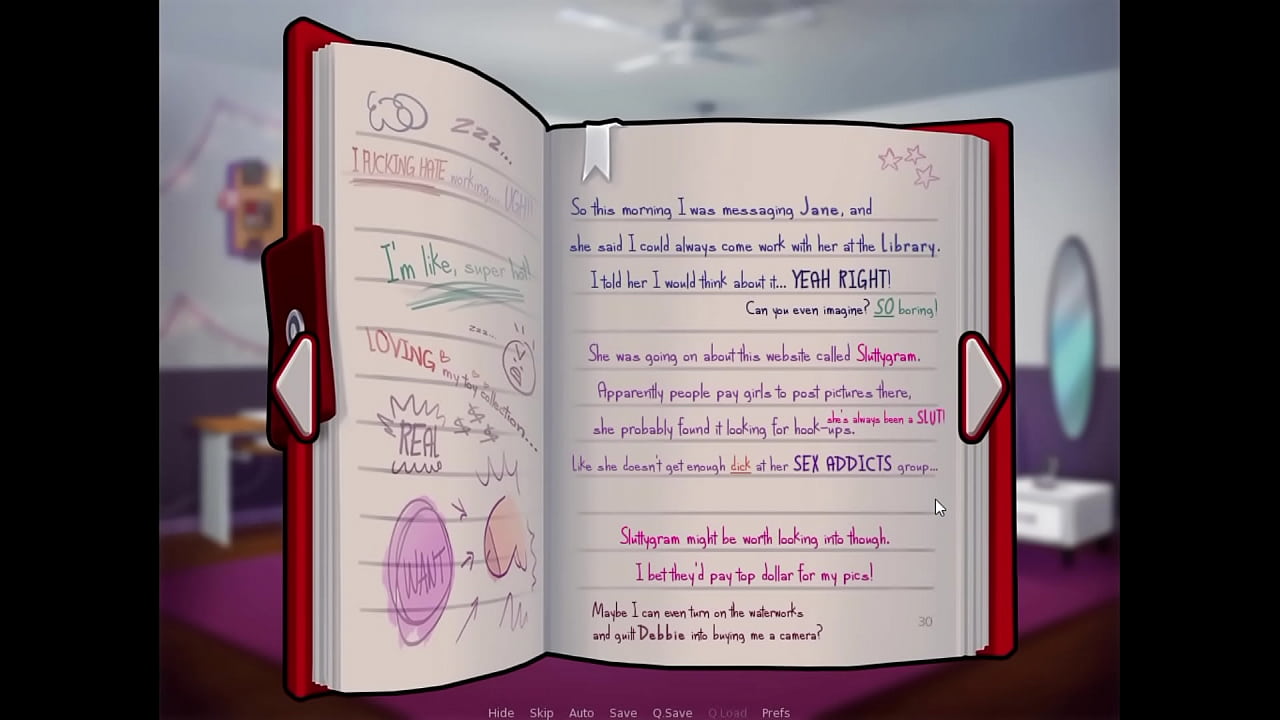 zzz...
I FUCKING HATE working.... UGH!!
I'm like, super hot!
zzz...
LOVING
my toy collection...
REAL
WANT
So this morning I was messaging Jane, and
she said I could always come work with her at the Library.
I told her I would think about it... YEAH RIGHT!
Can you even imagine? SO boring!
She was going on about this website called Sluttygram.
Apparently people pay girls to post pictures there,
she's always been a SLUT!
she probably found it looking for hook-ups.
Like she doesn't get enough dick at her SEX ADDICTS group...
Sluttygram might be worth looking into though.
I bet they'd pay top dollar for my pics!
Maybe I can even turn on the waterworks
and guilt Debbie into buying me a camera?
30
Hide Skip Auto Save Q.Save Q.Load Prefs